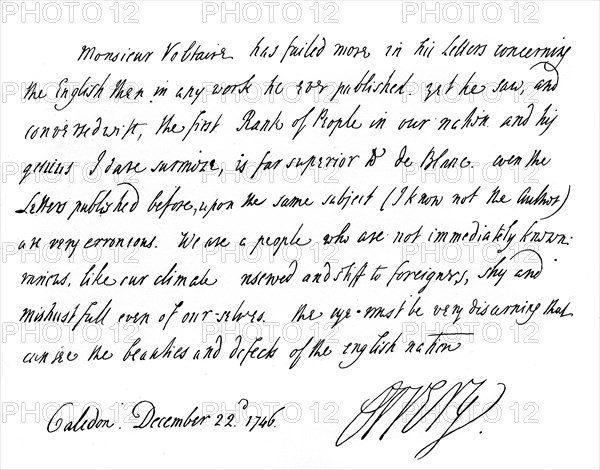 Monsieur Voltaire has failed more in his Letters concerning
the English then in any work he ever published. yet he saw, and
conversed with, the first Rank of People in our nation and his
genius I dare surmize, is far superior to de Blanc. even the
Letters published before, upon the same subject (I know not the Author)
are very erroneous. We are a people who are not immediately known:
various, like our climate reserved and stiff to foreigners, shy and
mistrustfull even of our selves. the eye must be very discerning that
can see the beauties and defects of the english nation
Caledon. December 22.d 1746.
ORRERY.
PHOTO 12